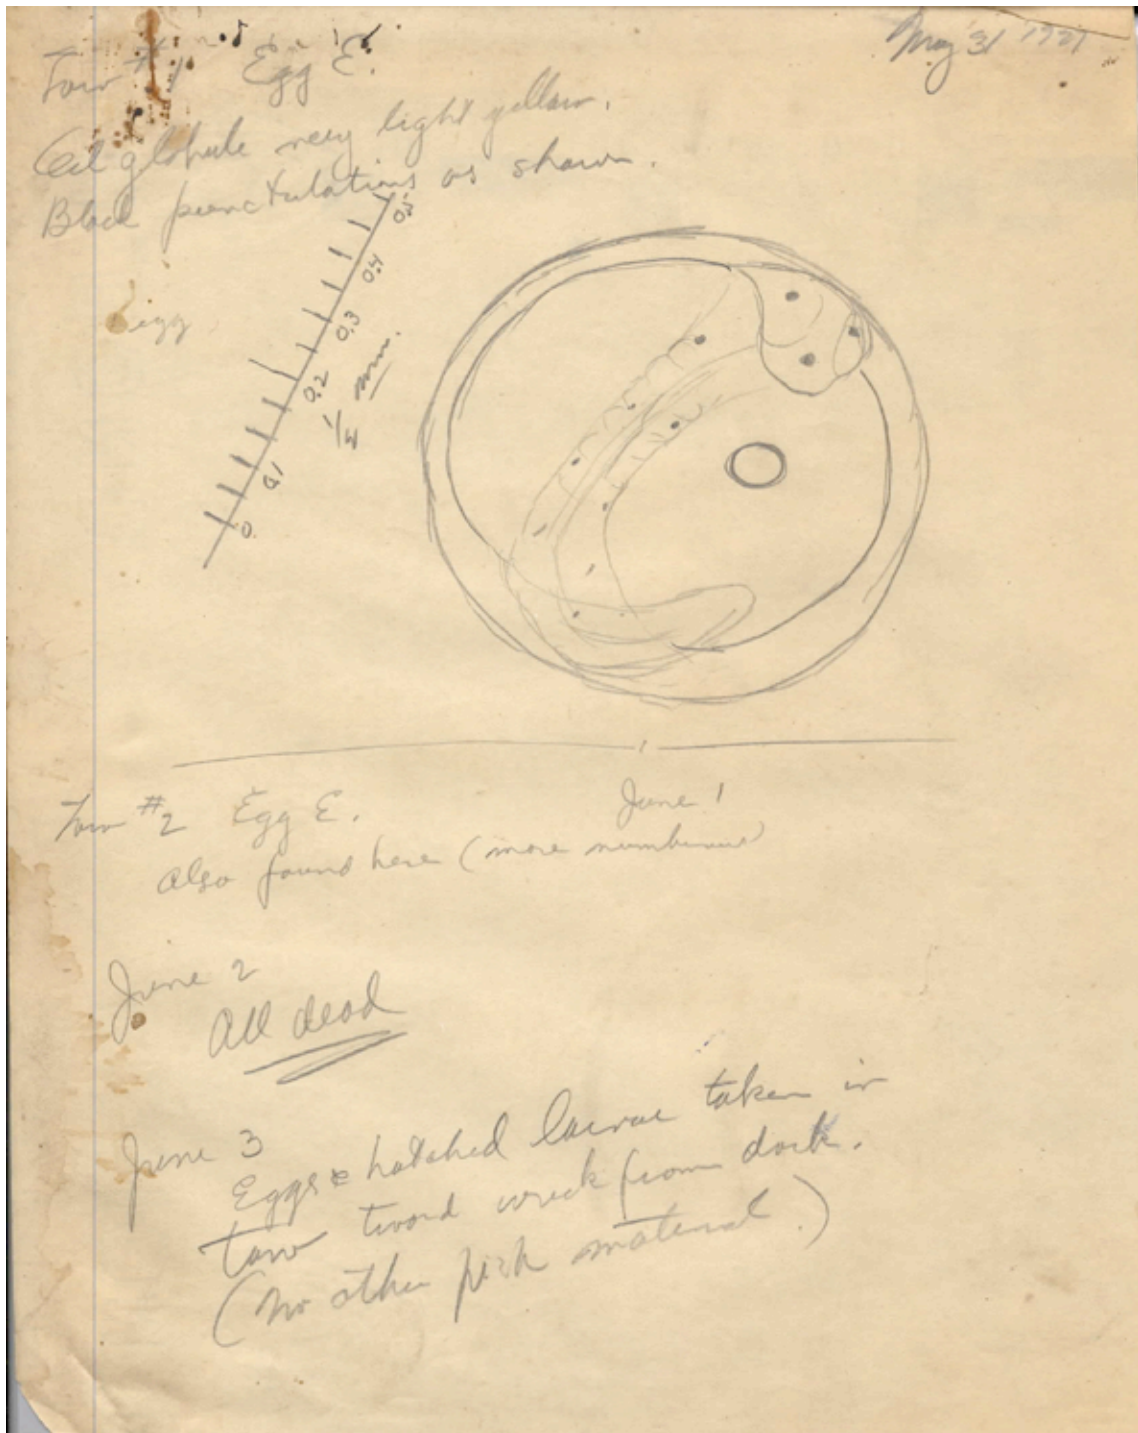 Tow #1 Egg E.
May 31 1927
Oil globule very light yellow.
Black punctulations as shown.
egg
0. 0.1 0.2 0.3 0.4 0.5
mm.
Tow #2 Egg E. June 1
Also found here (more numberous)
June 2
All dead
June 3
Eggs & hatched larvae taken in
tow tword wreck from dock.
(No other fish material.)